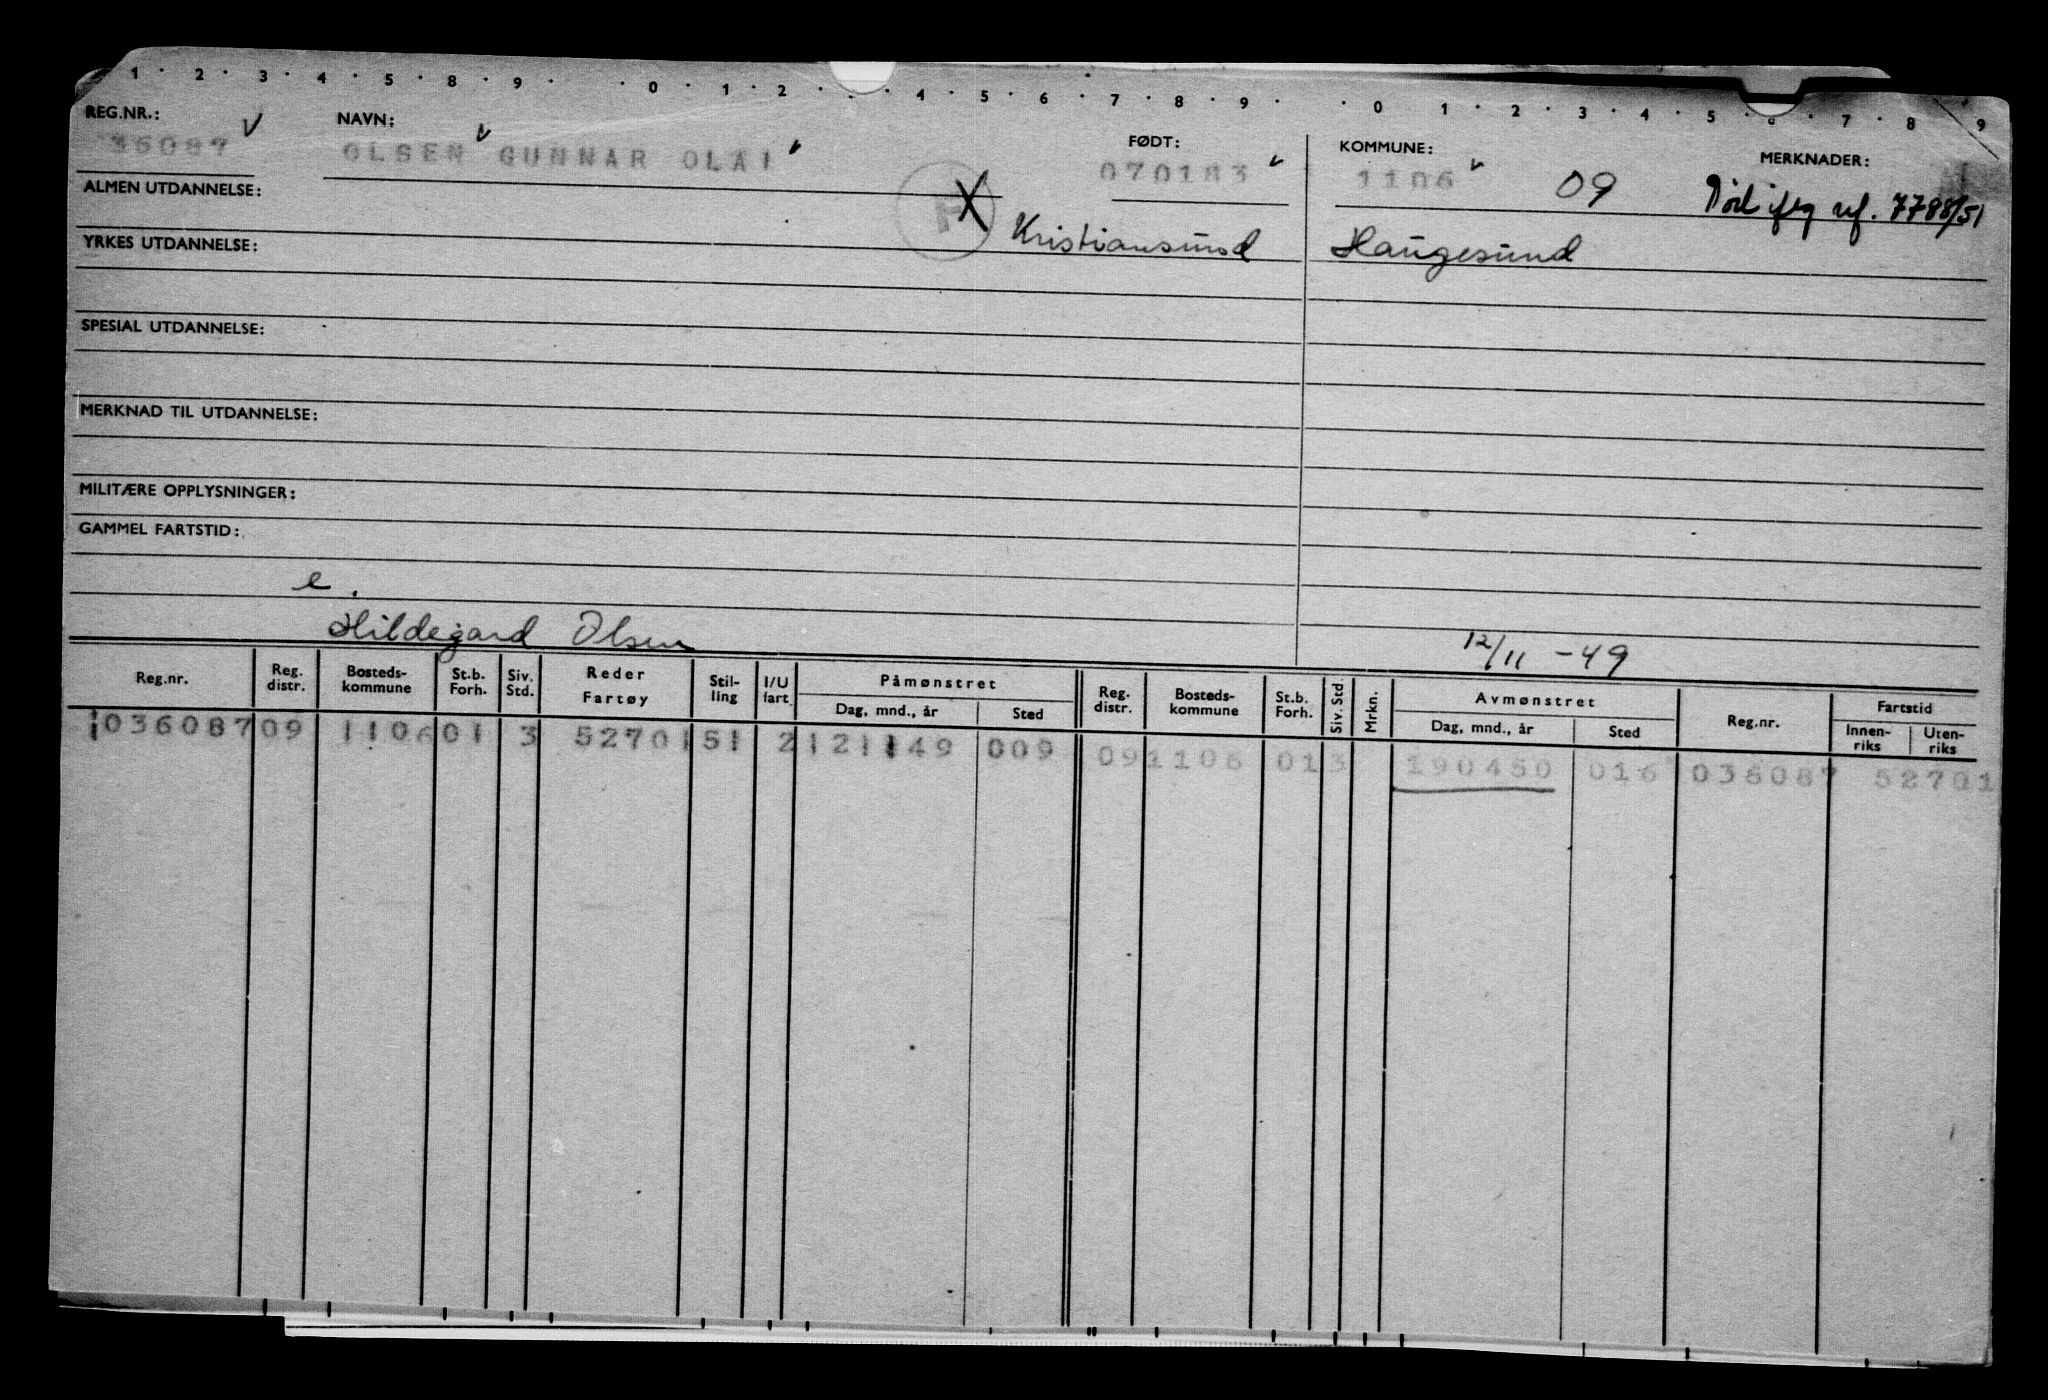 1 · 2 · 3 · 4 · 5 · 8 · 9 · · 0 · 1 · 2 · · 4 · 5 · 6 · 7 · 8 · 9 · · 0 · 1 · 2 · 3 · 4 · 5 · 6 · 7 · 8 · 9
REG.NR.: NAVN: FØDT: KOMMUNE: MERKNADER:
36087 OLSEN GUNNAR OLAI 070183 1106 09 Død iflg
ALMEN UTDANNELSE:
H Kristiansund Haugesund
YRKES UTDANNELSE:
SPESIAL UTDANNELSE:
MERKNAD TIL UTDANNELSE:
MILITÆRE OPPLYSNINGER:
GAMMEL FARTSTID:
e.
Hildegard Olsen 12/11 -49
Reg.nr. Reg. distr. Bosteds-kommune St.b. Forh. Siv. Std. Reder Fartøy Stil-ling I/U fart Påmønstret Dag, mnd., år Sted Reg. distr. Bosteds-kommune St.b. Forh. Siv. Std. Mrkn. Avmønstret Dag, mnd., år Sted Reg.nr. Fartstid Innen-riks Uten-riks
1036087 09 1106 01 3 52701 51 2 121149 009 09 1106 01 3 190450 016 036087 52701